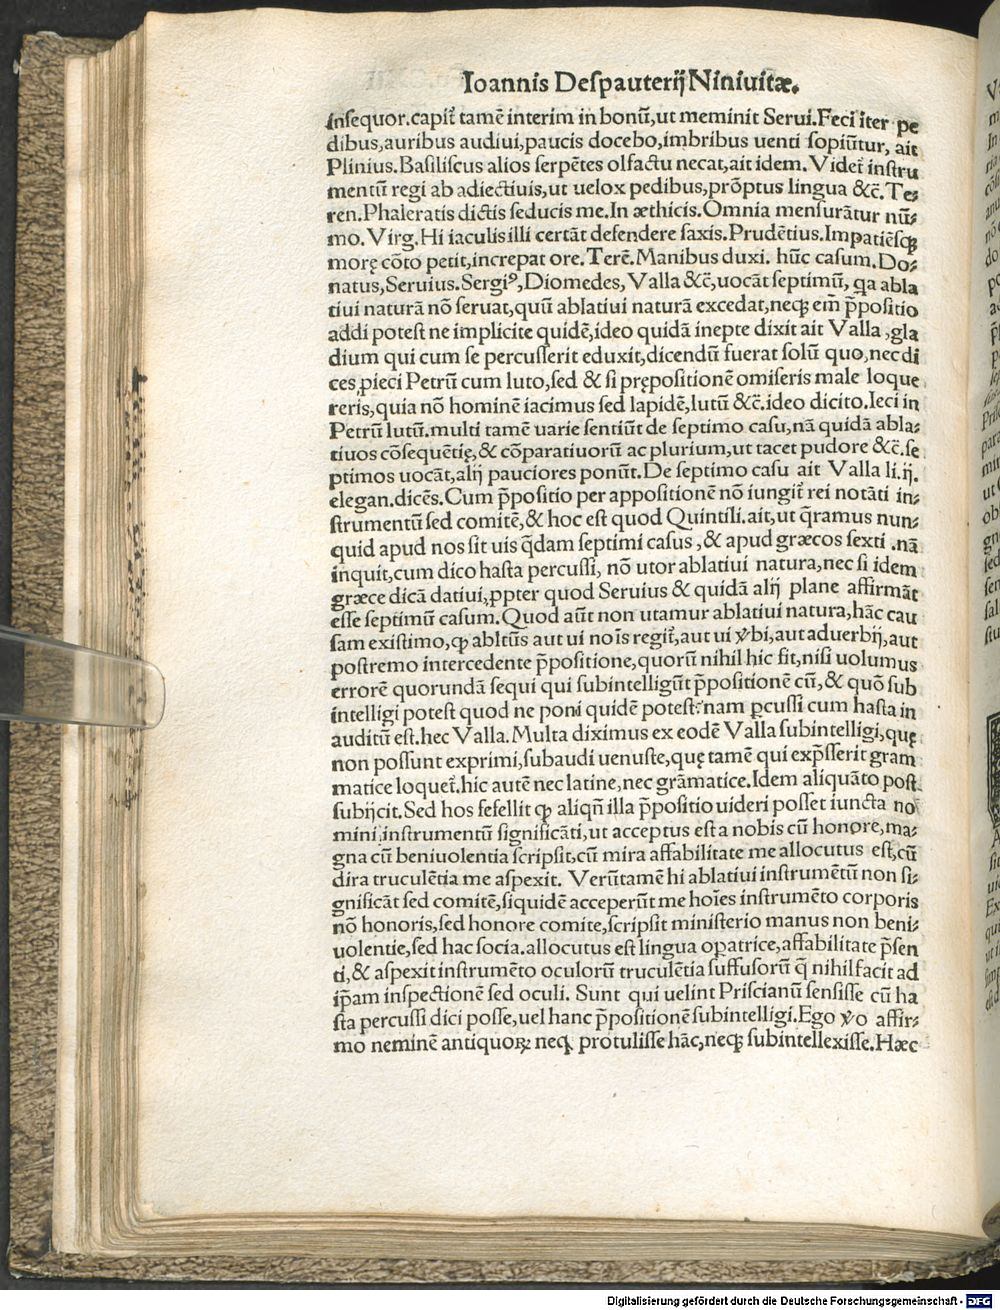 Ioannis Despauterij Niniuitæ.
Insequor.capit̃ tamē interim in bonū,ut meminit Serui.Feci iter pe
dibus,auribus audiui,paucis docebo,imbribus uenti sopiūtur, ait
Plinius.Basiliscus alios serpētes olfactu necat,ait idem.Videt̃ instru
mentū regi ab adiectiuis,ut uelox pedibus,prōptus lingua &c̄.Te⸗
ren.Phaleratis dictis seducis me.In æthicis.Omnia mensurātur nū⸗
mo.Virg.Hi iaculis illi certāt defendere saxis.Prudētius.Impatiēsq̃
morę cōto petit,increpat ore.Terē.Manibus duxi. hūc casum.Do⸗
natus,Seruius.Sergiꝰ,Diomedes,Valla &c̄,uocāt septimū, qa abla
tiui naturā nō seruat,quū ablatiui naturā excedat,neqꝫ em̄ p̄positio
addi potest ne implicite quidē,ideo quidā inepte dixit ait Valla ,gla
dium qui cum se percusserit eduxit,dicendū fuerat solū quo,nec di
ces,ꝓieci Petrū cum luto,sed & si prępositionē omiseris male loque
reris,quia nō hominē iacimus sed lapidē,lutū &c̄.ideo dicito.Ieci in
Petrū lutū.multi tamē uarie sentiūt de septimo casu,nā quidā abla⸗
tiuos cōsequētię,& cōparatiuorū ac plurium,ut tacet pudore &c̄.se
ptimos uocāt,alij pauciores ponūt.De septimo casu ait Valla li.ij.
elegan.dicēs.Cum p̄positio per appositionē nō iungit̃ rei notāti in⸗
strumentū sed comitē,& hoc est quod Quintili.ait,ut q̄ramus nun⸗
quid apud nos sit uis q̄dam septimi casus ,& apud græcos sexti .nā
inquit,cum dico hasta percussi, nō utor ablatiui natura,nec si idem
græce dicā datiui,ꝓpter quod Seruius & quidā alij plane affirmāt
esse septimū casum.Quod aūt non utamur ablatiui natura,hāc cau
sam existimo,ꝙ abltūs aut ui nōis regit̃,aut ui v̄bi,aut aduerbij,aut
postremo intercedente p̄positione,quorū nihil hic fit,nisi uolumus
errorē quorundā sequi qui subintelligūt p̄positionē cū,& quō sub
intelligi potest quod ne poni quidē potest:nam ꝑcussi cum hasta in
auditū est.hec Valla.Multa diximus ex eodē Valla subintelligi,quę
non possunt exprimi,subaudi uenuste,quę tamē qui exp̄sserit gram
matice loquet̃.hic autē nec latine,nec grāmatice.Idem aliquāto post
subijcit.Sed hos fefellit ꝙ aliqn̄ illa p̄positio uideri posset iuncta no
mini,instrumentū significāti,ut acceptus est a nobis cū honore,ma⸗
gna cū beniuolentia scripsit,cū mira affabilitate me allocutus est,cū
dira truculētia me aspexit. Verūtamē hi ablatiui instrumētū non si⸗
gnificāt sed comitē,siquidē acceperūt me hoīes instrumēto corporis
nō honoris,sed honore comite,scripsit ministerio manus non beni⸗
uolentie,sed hac socia.allocutus est lingua opatrice,affabilitate p̄sen
ti,& aspexit instrumēto oculorū truculētia suffusorū q̄ nihil facit ad
ip̄am inspectionē sed oculi. Sunt qui uelint Priscianū sensisse cū ha
sta percussi dici posse,uel hanc p̄positionē subintelligi.Ego v̄o affir⸗
mo neminē antiquoꝝ neqꝫ protulisse hāc,neqꝫ subintellexisse.Hæc
Digitalisierung gefördert durch die Deutsche Forschungsgemeinschaft - DFG